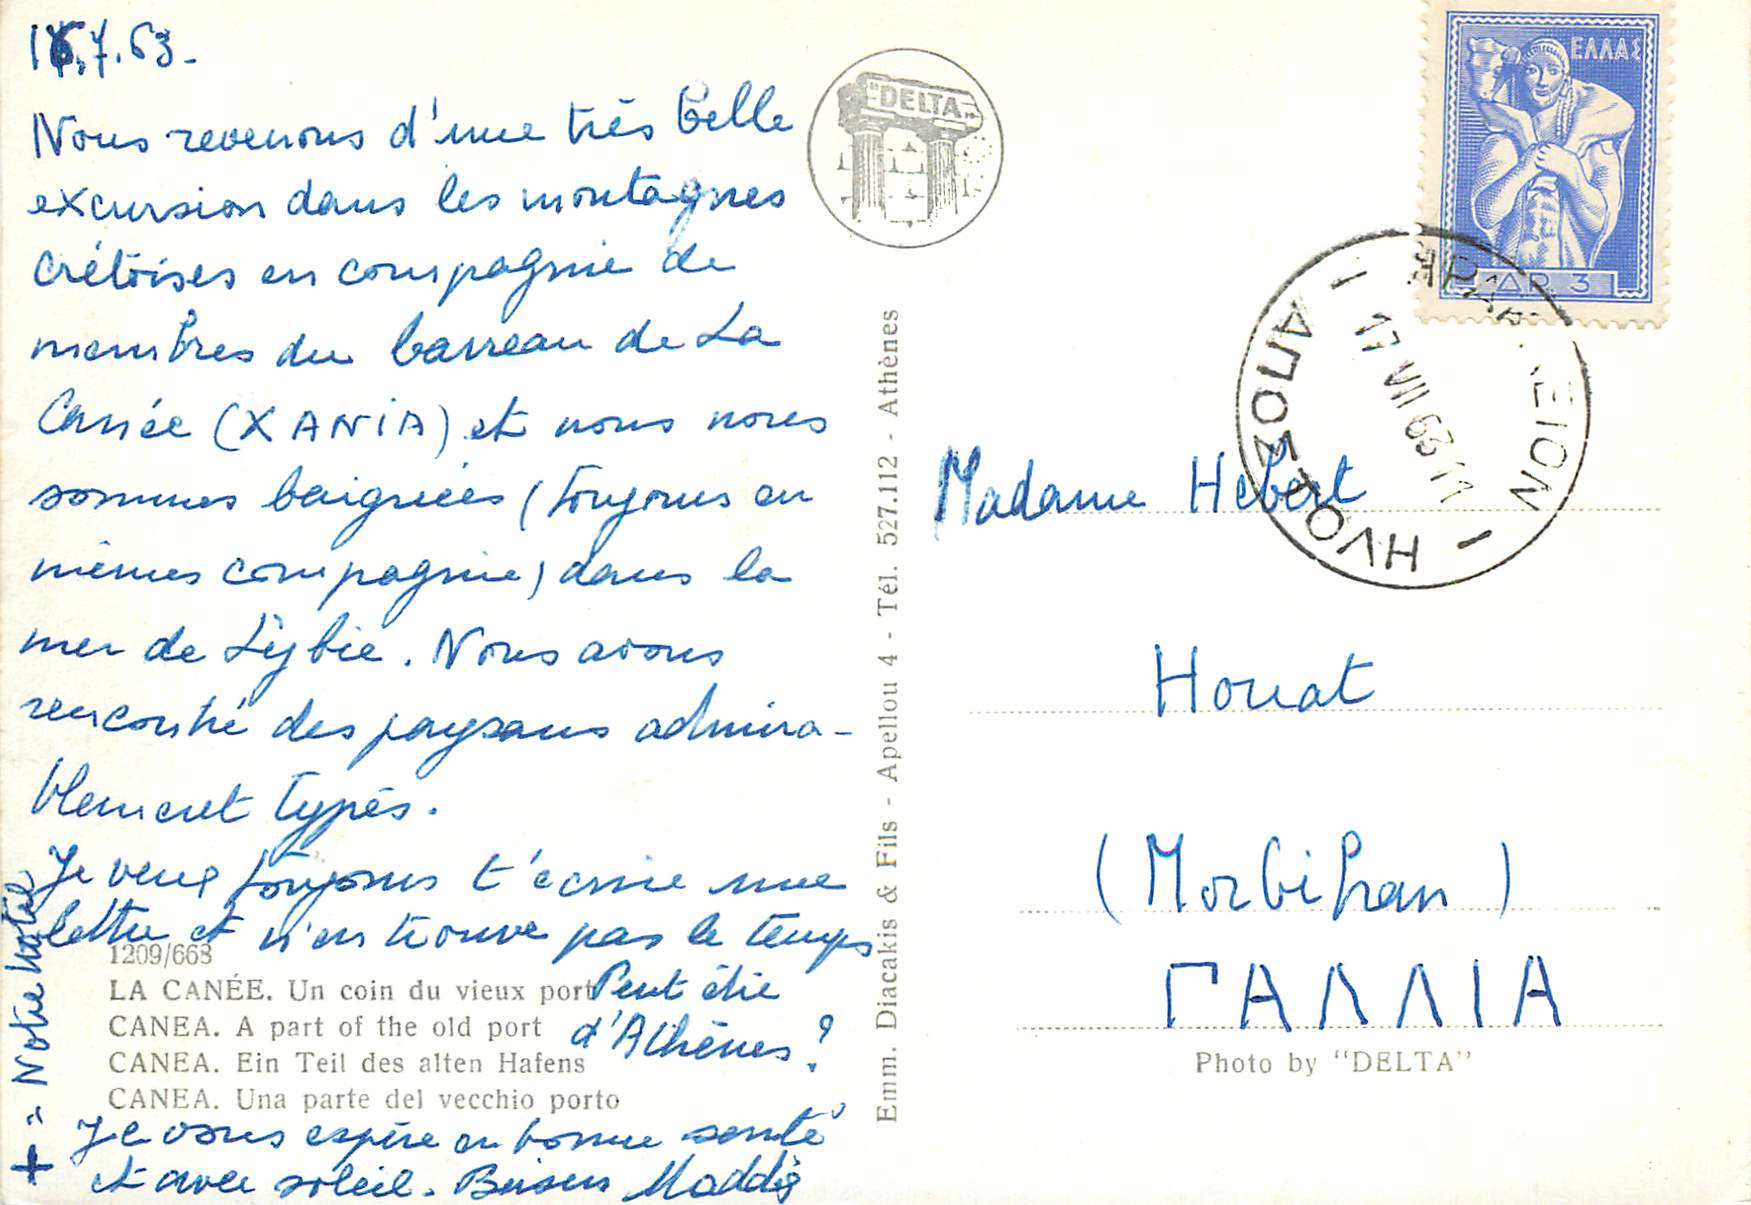 16.7.63-
Nous revenons d'une très belle
excursion dans les montagnes
crétoises en compagnie de
membres du barreau de La
Canée (XANIA) et nous nous
sommes baignées (toujours en
mêmes compagnie) dans la
mer de Lybie. Nous avons
rencontré des paysans admira-
blement typés.
Je veux toujours t'écrire une
lettre et n'en trouve pas le temps
Peut être
d'Athènes?
Je vous espère en bonne santé
et avec soleil. Baisers Maddie
+ = Notre hôtel
1209/668
LA CANÉE. Un coin du vieux port
CANEA. A part of the old port
CANEA. Ein Teil des alten Hafens
CANEA. Una parte del vecchio porto
"DELTA"
Emm. Diacakis & Fils - Apellou 4 - Tél. 527.112 - Athènes
ΕΛΛΑΣ
ΔΡ. 3
ΗΡΑΚΛΕΙΟΝ - ΑΠΟΣΤΟΛΗ -
17 VII 63 11
Madame Hebert
Houat
(Morbihan)
ΓΑΛΛΙΑ
Photo by "DELTA"